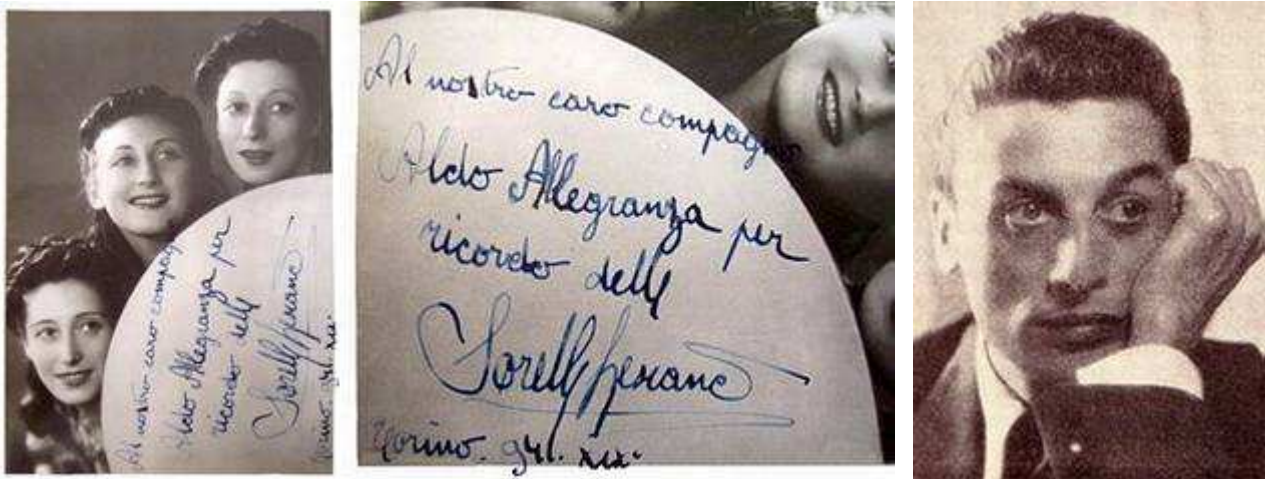 Al nostro caro compagno
Aldo Allegranza per
ricordo delle
Sorelle Lescano
Torino. 941. XIX.
Al nostro caro compagno
Aldo Allegranza per
ricordo delle
Sorelle Lescano
Torino. 941. XIX.